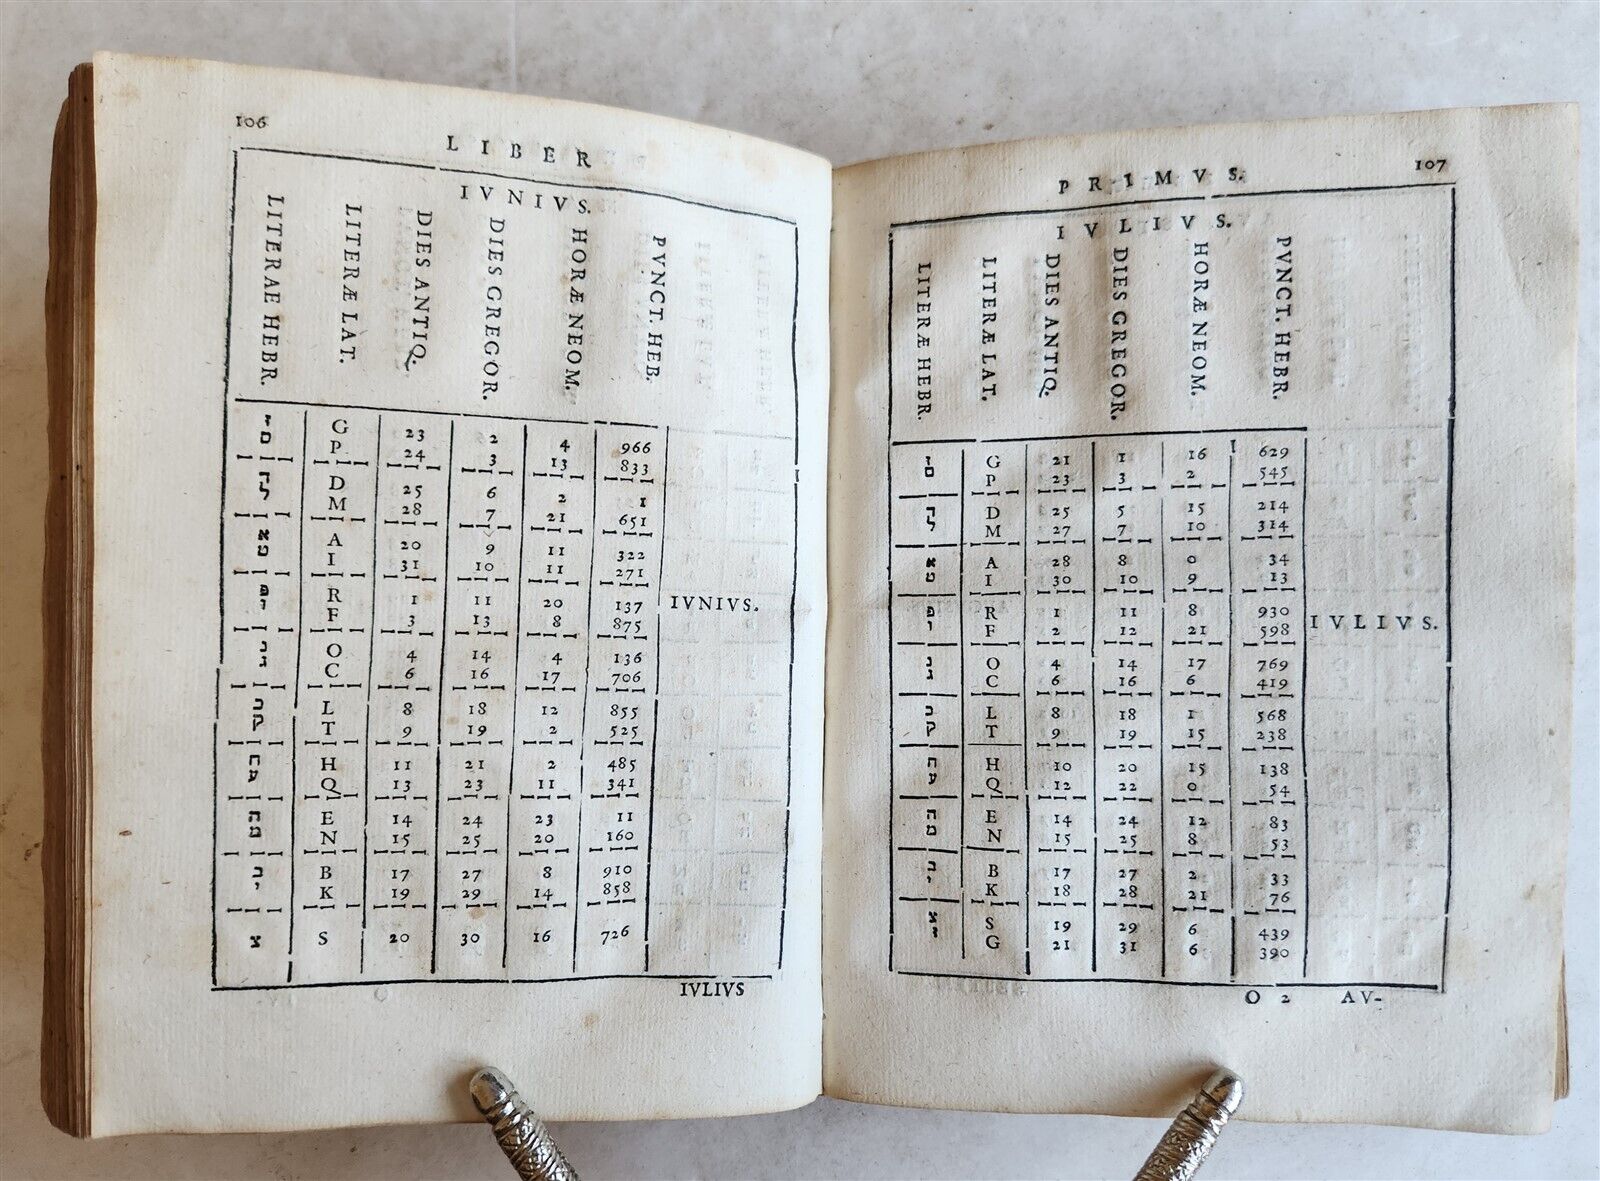 106
LIBER
IVNIVS.
LITERAE HEBR. LITERÆ LAT. DIES ANTIQ. DIES GREGOR. HORÆ NEOM. PVNCT. HEB.
G 23 2 4 966
P 24 3 13 833
D 25 6 2 1
M 28 7 21 651
A 20 9 11 322
I 31 10 11 271
R 1 11 20 137
F 3 13 8 875
IVNIVS.
O 4 14 4 136
C 6 16 17 706
L 8 18 12 855
T 9 19 2 525
H 11 21 2 485
Q 13 23 11 341
E 14 24 23 11
N 15 25 20 160
B 17 27 8 910
K 19 29 14 858
צ S 20 30 16 726
IVLIVS
PRIMVS.
107
IVLIVS.
LITERÆ HEBR. LITERÆ LAT. DIES ANTIQ. DIES GREGOR. HORÆ NEOM. PVNCT. HEBR.
G 21 1 16 629
P 23 3 2 545
D 25 5 15 214
M 27 7 10 314
A 28 8 0 34
I 30 10 9 13
R 1 11 8 930
F 2 12 21 598
IVLIVS.
O 4 14 17 769
C 6 16 6 419
L 8 18 1 568
T 9 19 15 238
H 10 20 15 138
Q 12 22 0 54
E 14 24 12 83
N 15 25 8 53
B 17 27 2 33
K 18 28 21 76
S 19 29 6 439
G 21 31 6 390
O 2 AV-